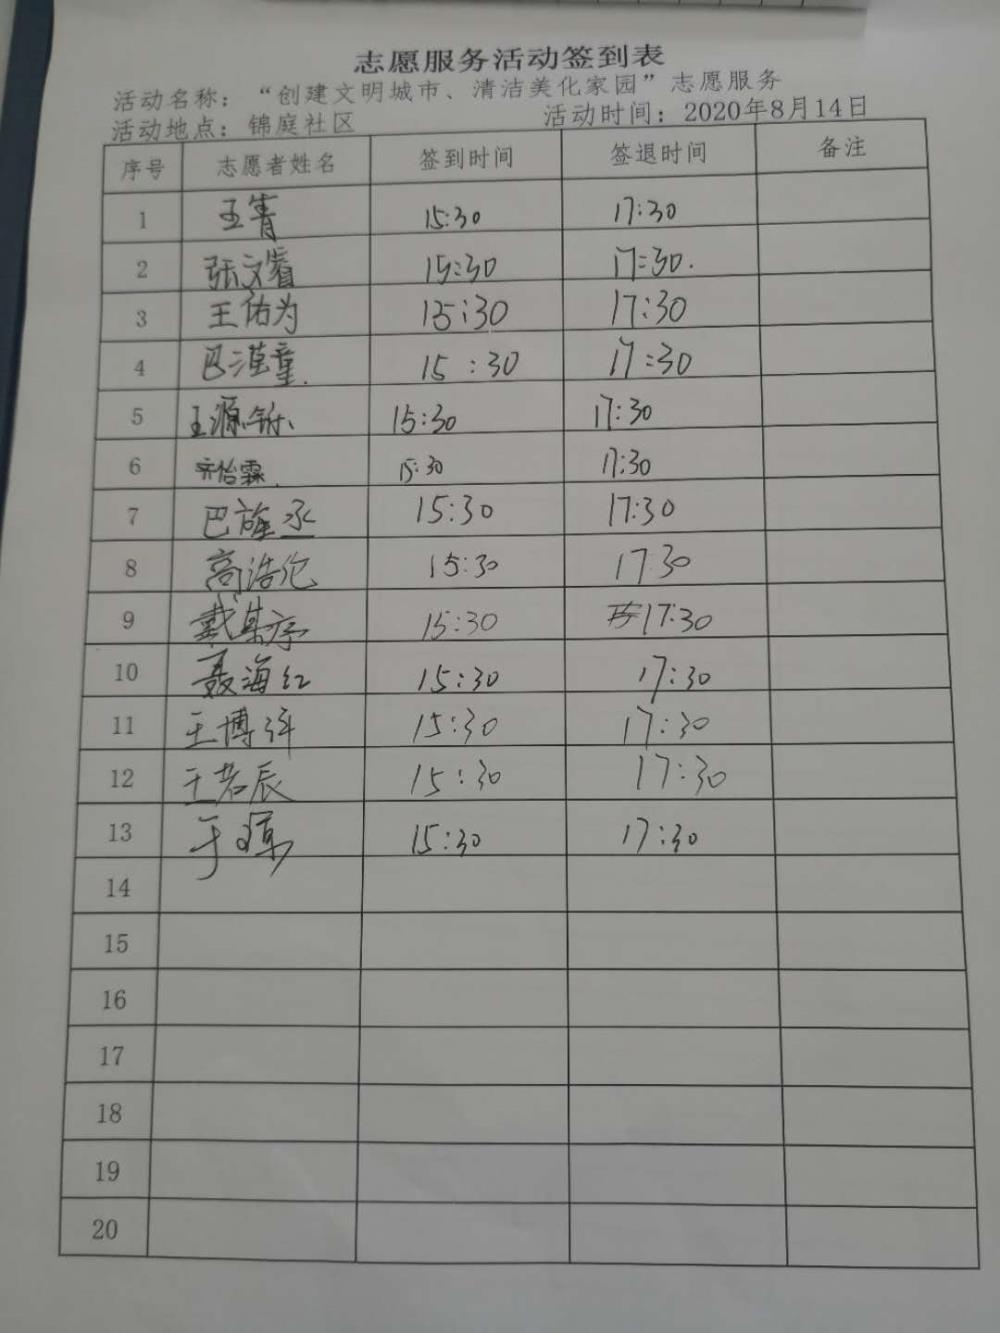 志愿服务活动签到表
活动名称：“创建文明城市、清洁美化家园”志愿服务
活动地点：锦庭社区 活动时间：2020年8月14日
序号 志愿者姓名 签到时间 签退时间 备注
1 王青 15:30 17:30
2 张文睿 15:30 17:30.
3 王佑为 15:30 17:30
4 15:30 17:30
5 15:30 17:30
6 齐怡霖. 15:30 17:30
7 15:30 17:30
8 高浩伦 15:30 17:30
9 15:30 17:30
10 聂海红 15:30 17:30
11 15:30 17:30
12 15:30 17:30
13 15:30 17:30
14
15
16
17
18
19
20